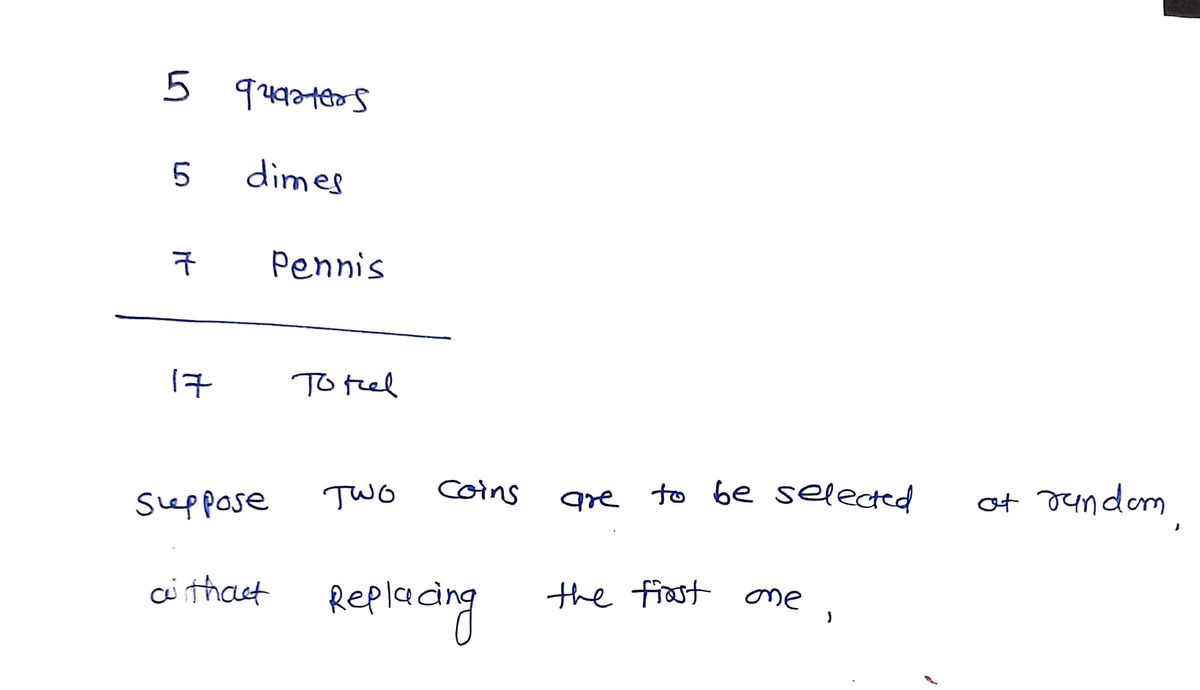 5 quarters
5 dimes
7 Pennis
17 Total
Suppose Two Coins are to be selected at random,
without Replacing the first one,